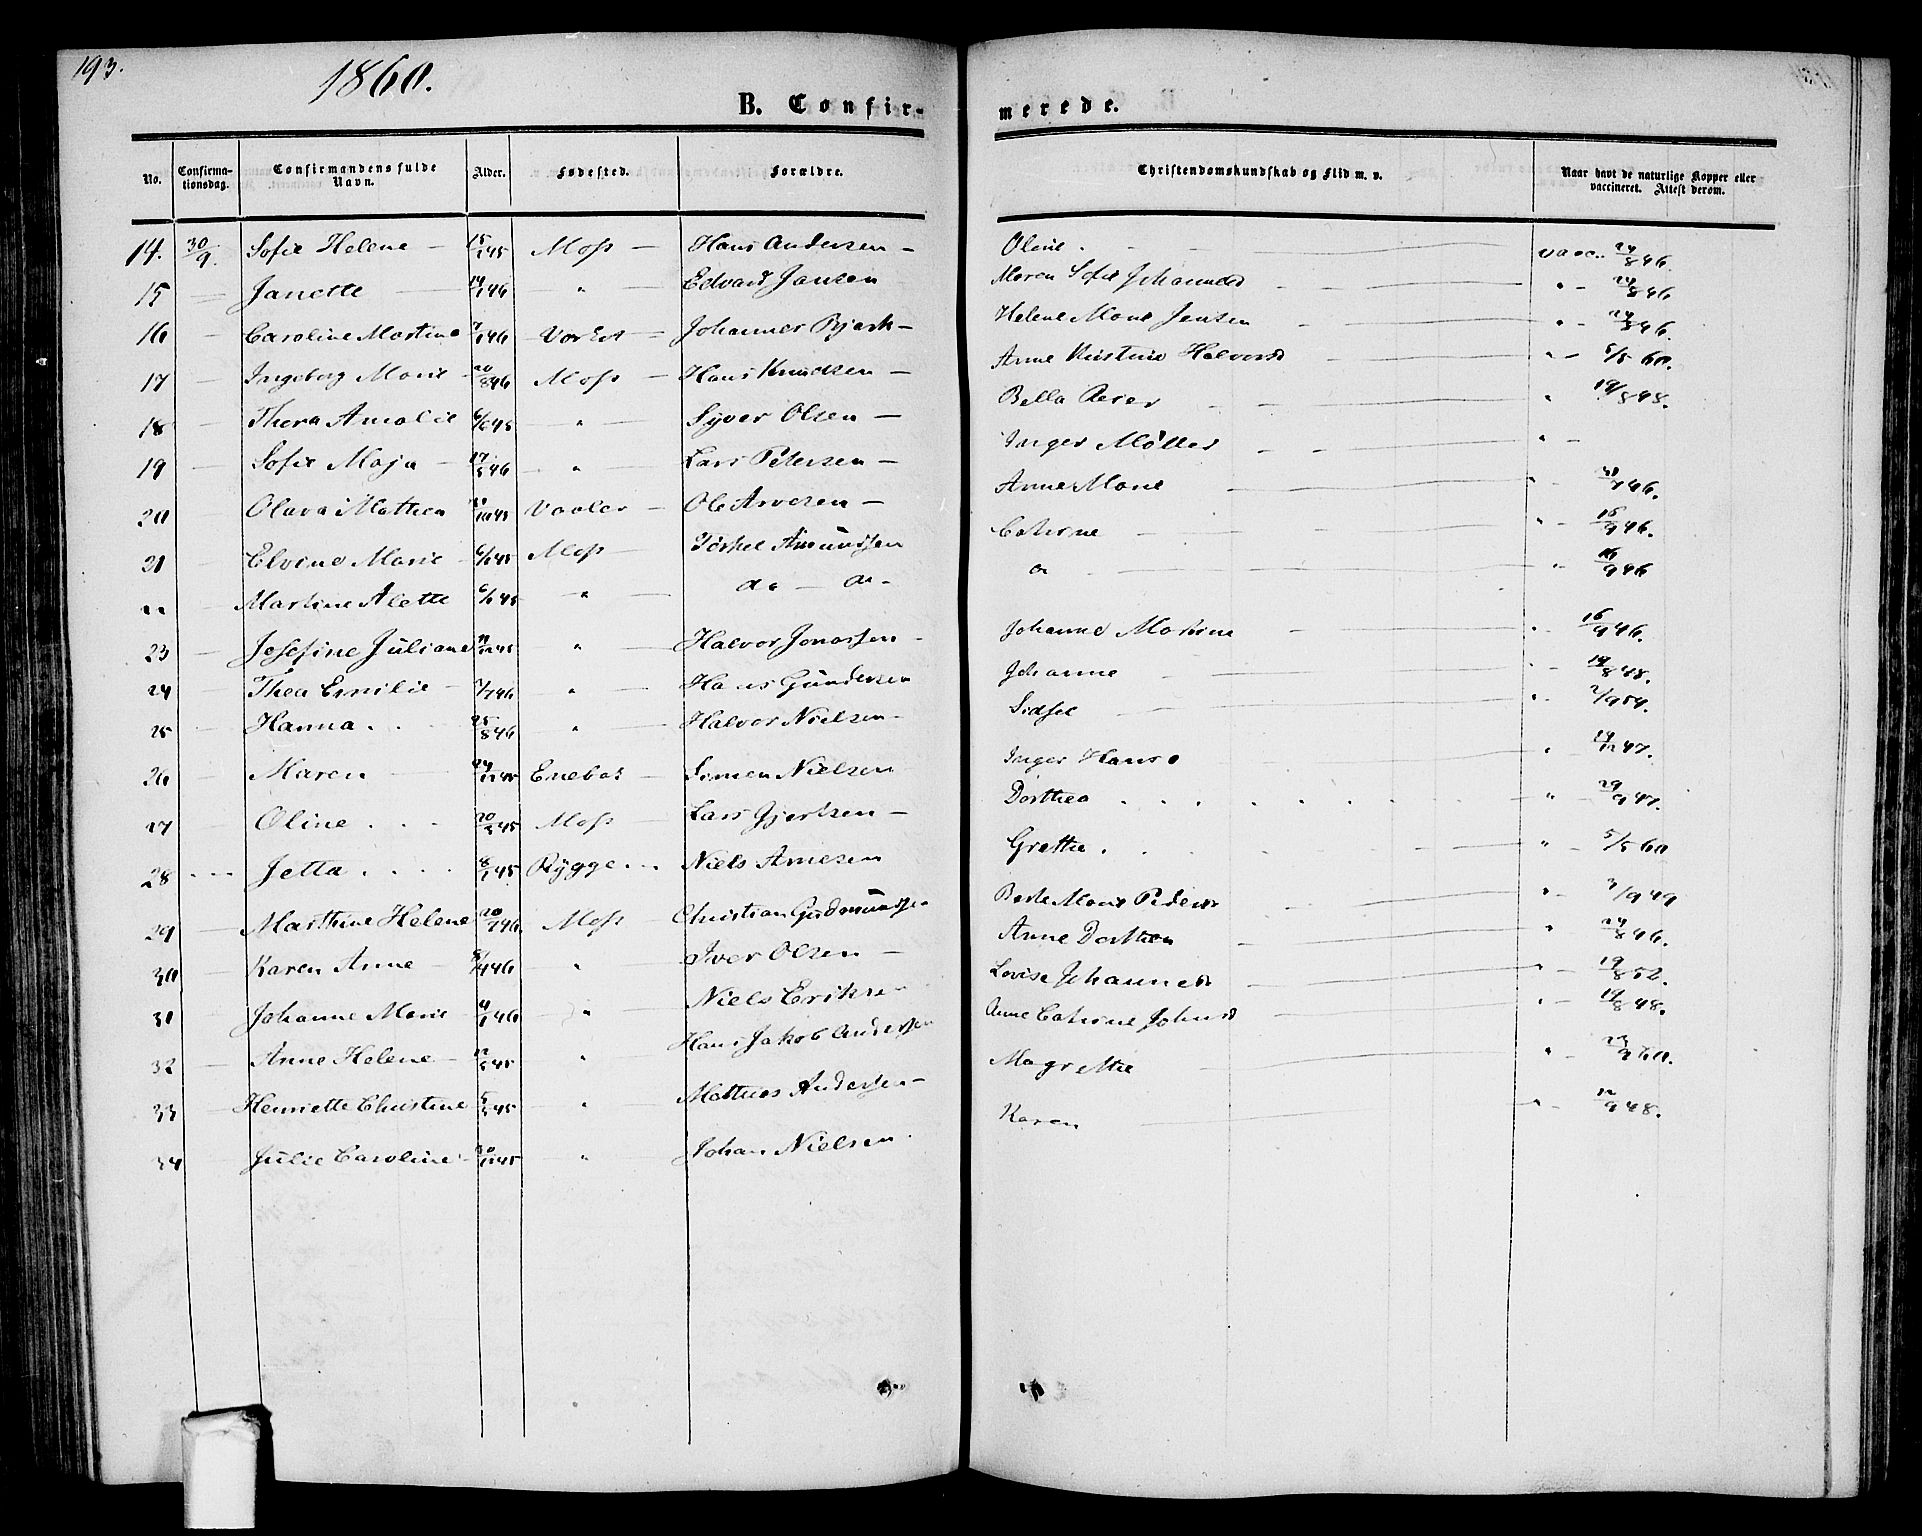 193.
1860.
B. Confir-
merede.
No. Confirma-tionsdag. Confirmandens fulde Navn. Alder. Fødested. Forældre. Christendomskundskab og Flid m. v. Naar havt de naturlige Kopper eller vaccineret. Attest derom.
14. 30/9. Sofie Helene — 15/1 45 Moss — Hans Andersen — Oline . — vacc. 24/8 46.
15 — Janette — 14/1 46 " Edvard Jansen Maren Sofie Johannesd — " – 24/8 46
16 — Caroline Martine 7/1 46 — Johannes Bjerk — Helene Marie Jensen — " – 24/8 46.
17 — Ingeborg Marie — 20/8 46 Moss — Hans Knudsen — Anne Kristine Halvorsd — " – 5/5 60.
18 — Thora Amalie 6/6 45 " — Syver Olsen — Bella — " 19/8 48.
19 — Sofie Maja — 17/5 46 — " Lars Petersen — Inger Möller — " –
20 Olava Mathea 10 45 Vaaler — Ole Arvesen — Anne Marie — " – 7 46.
21 Elvine Marie — 6/1 45 Moss — Torkel Amundsen Catrine — " – 16/9 46.
22 — Martine Alette 6/1 45 — " — do — do — " – 16/9 46
23 — Josefine Juliane 11/12 45 " Halvor Jonassen — Johanne Martine — " – 16/9 46.
24 — Thea Emilie — 7/7 46 " — Hans Gundersen Johanne — " – 19/8 48.
25 — Hanna . . 25/8 46 — " Halvor Nielsen — Sidsel — " – 2/9 59.
26 — Maren — 24/12 45 Enebak — Simen Nielsen Inger Hans — " – 19/12 47.
27 — Oline . . . 20/3 45 Moss — Lars Gjertsen — Dorthea . . . . — " – 29/9 47.
28 . . . Jetta . . . . 8/1 45 Rygge . . . Niels Arnesen Grethe . . . — " – 5/5 60
29 — Marthine Helene 20/7 46. Moss — Christian Gudmundsen Berte Marie Pedersd — " – 3/9 49
30 — Karen Anne — 4 46 — " Iver Olsen — Anne Dorthea — " 24/8 46.
31 — Johanne Marie — 4/1 46 — " Niels Eriksen Lovise Johannesd — " – 19/8 52.
32 — Anne Helene — 12/5 45 " Hans Jakob Andersen Anne Catrine Johnsd — " – 19/8 48.
33 — Henriette Christine 5/5 45 — " — Mathias Andersen — Magrethe — " – 23/9 60.
34 Julie Caroline — 30/12 45 — " — Johan Nielsen . Karen — " – 12/9 48.